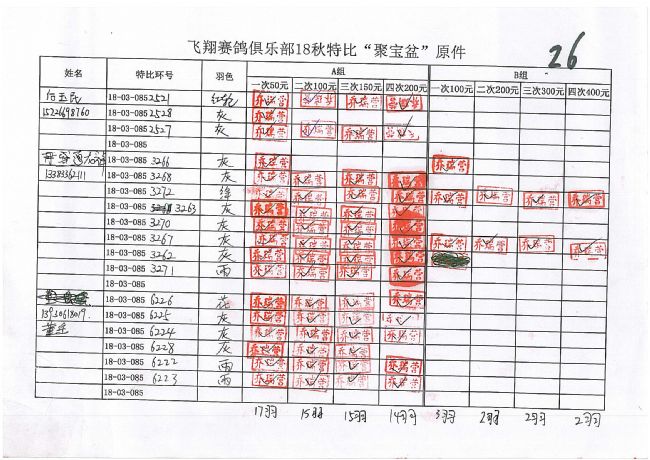 飞翔赛鸽俱乐部18秋特比“聚宝盆”原件
26
姓名 特比环号 羽色 A组 B组
一次50元 二次100元 三次150元 四次200元 一次100元 二次200元 三次300元 四次400元
白玉民 18-03-085 2521 红轮 乔瑞营
15226698760 18-03-085 2528 灰 乔瑞营
18-03-085 2527 灰 乔瑞营 乔瑞营 乔瑞营
18-03-085
18-03-085 3266 灰 乔瑞营 乔瑞营
13383362411 18-03-085 3268 灰 乔瑞营 乔瑞营 乔瑞营 乔瑞营
18-03-085 3272 绛 乔瑞营 乔瑞营 乔瑞营 乔瑞营 乔瑞营 乔瑞营 乔瑞营 乔瑞营
18-03-085 3263 灰 乔瑞营 乔瑞营 乔瑞营 乔瑞营
18-03-085 3270 灰 乔瑞营 乔瑞营 乔瑞营 乔瑞营
18-03-085 3267 灰 乔瑞营 乔瑞营 乔瑞营 乔瑞营 乔瑞营 乔瑞营 乔瑞营 乔瑞营
18-03-085 3262 灰 乔瑞营 乔瑞营 乔瑞营 乔瑞营
18-03-085 3271 雨 乔瑞营 乔瑞营 乔瑞营 乔瑞营
18-03-085
18-03-085 6226 乔瑞营 乔瑞营 乔瑞营 乔瑞营
13930618019. 18-03-085 6225 灰 乔瑞营 乔瑞营 乔瑞营
18-03-085 6224 灰 乔瑞营 乔瑞营 乔瑞营 乔瑞营
18-03-085 6228 灰 乔瑞营 乔瑞营 乔瑞营
18-03-085 6222 雨 乔瑞营 乔瑞营 乔瑞营 乔瑞营
18-03-085 6223 雨 乔瑞营 乔瑞营 乔瑞营 乔瑞营
18-03-085
17羽 15羽 15羽 14羽 3羽 2羽 2羽 2羽